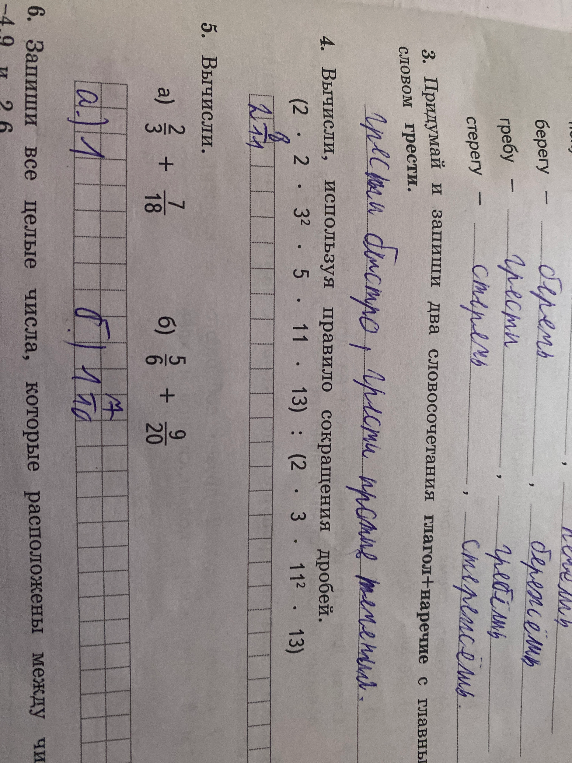 берегу – беречь, бережёшь
гребу – грести, гребёшь
стерегу – стеречь, стережёшь.
3. Придумай и запиши два словосочетания глагол+наречие с главны
словом грести.
грести быстро, грести против течения.
4. Вычисли, используя правило сокращения дробей.
(2 · 2 · 3² · 5 · 11 · 13) : (2 · 3 · 11² · 13)
5. Вычисли.
а) 2/3 + 7/18 б) 5/6 + 9/20
а.) 1 б.) 1
6. Запиши все целые числа, которые расположены между чи
-4,9 и 2,6